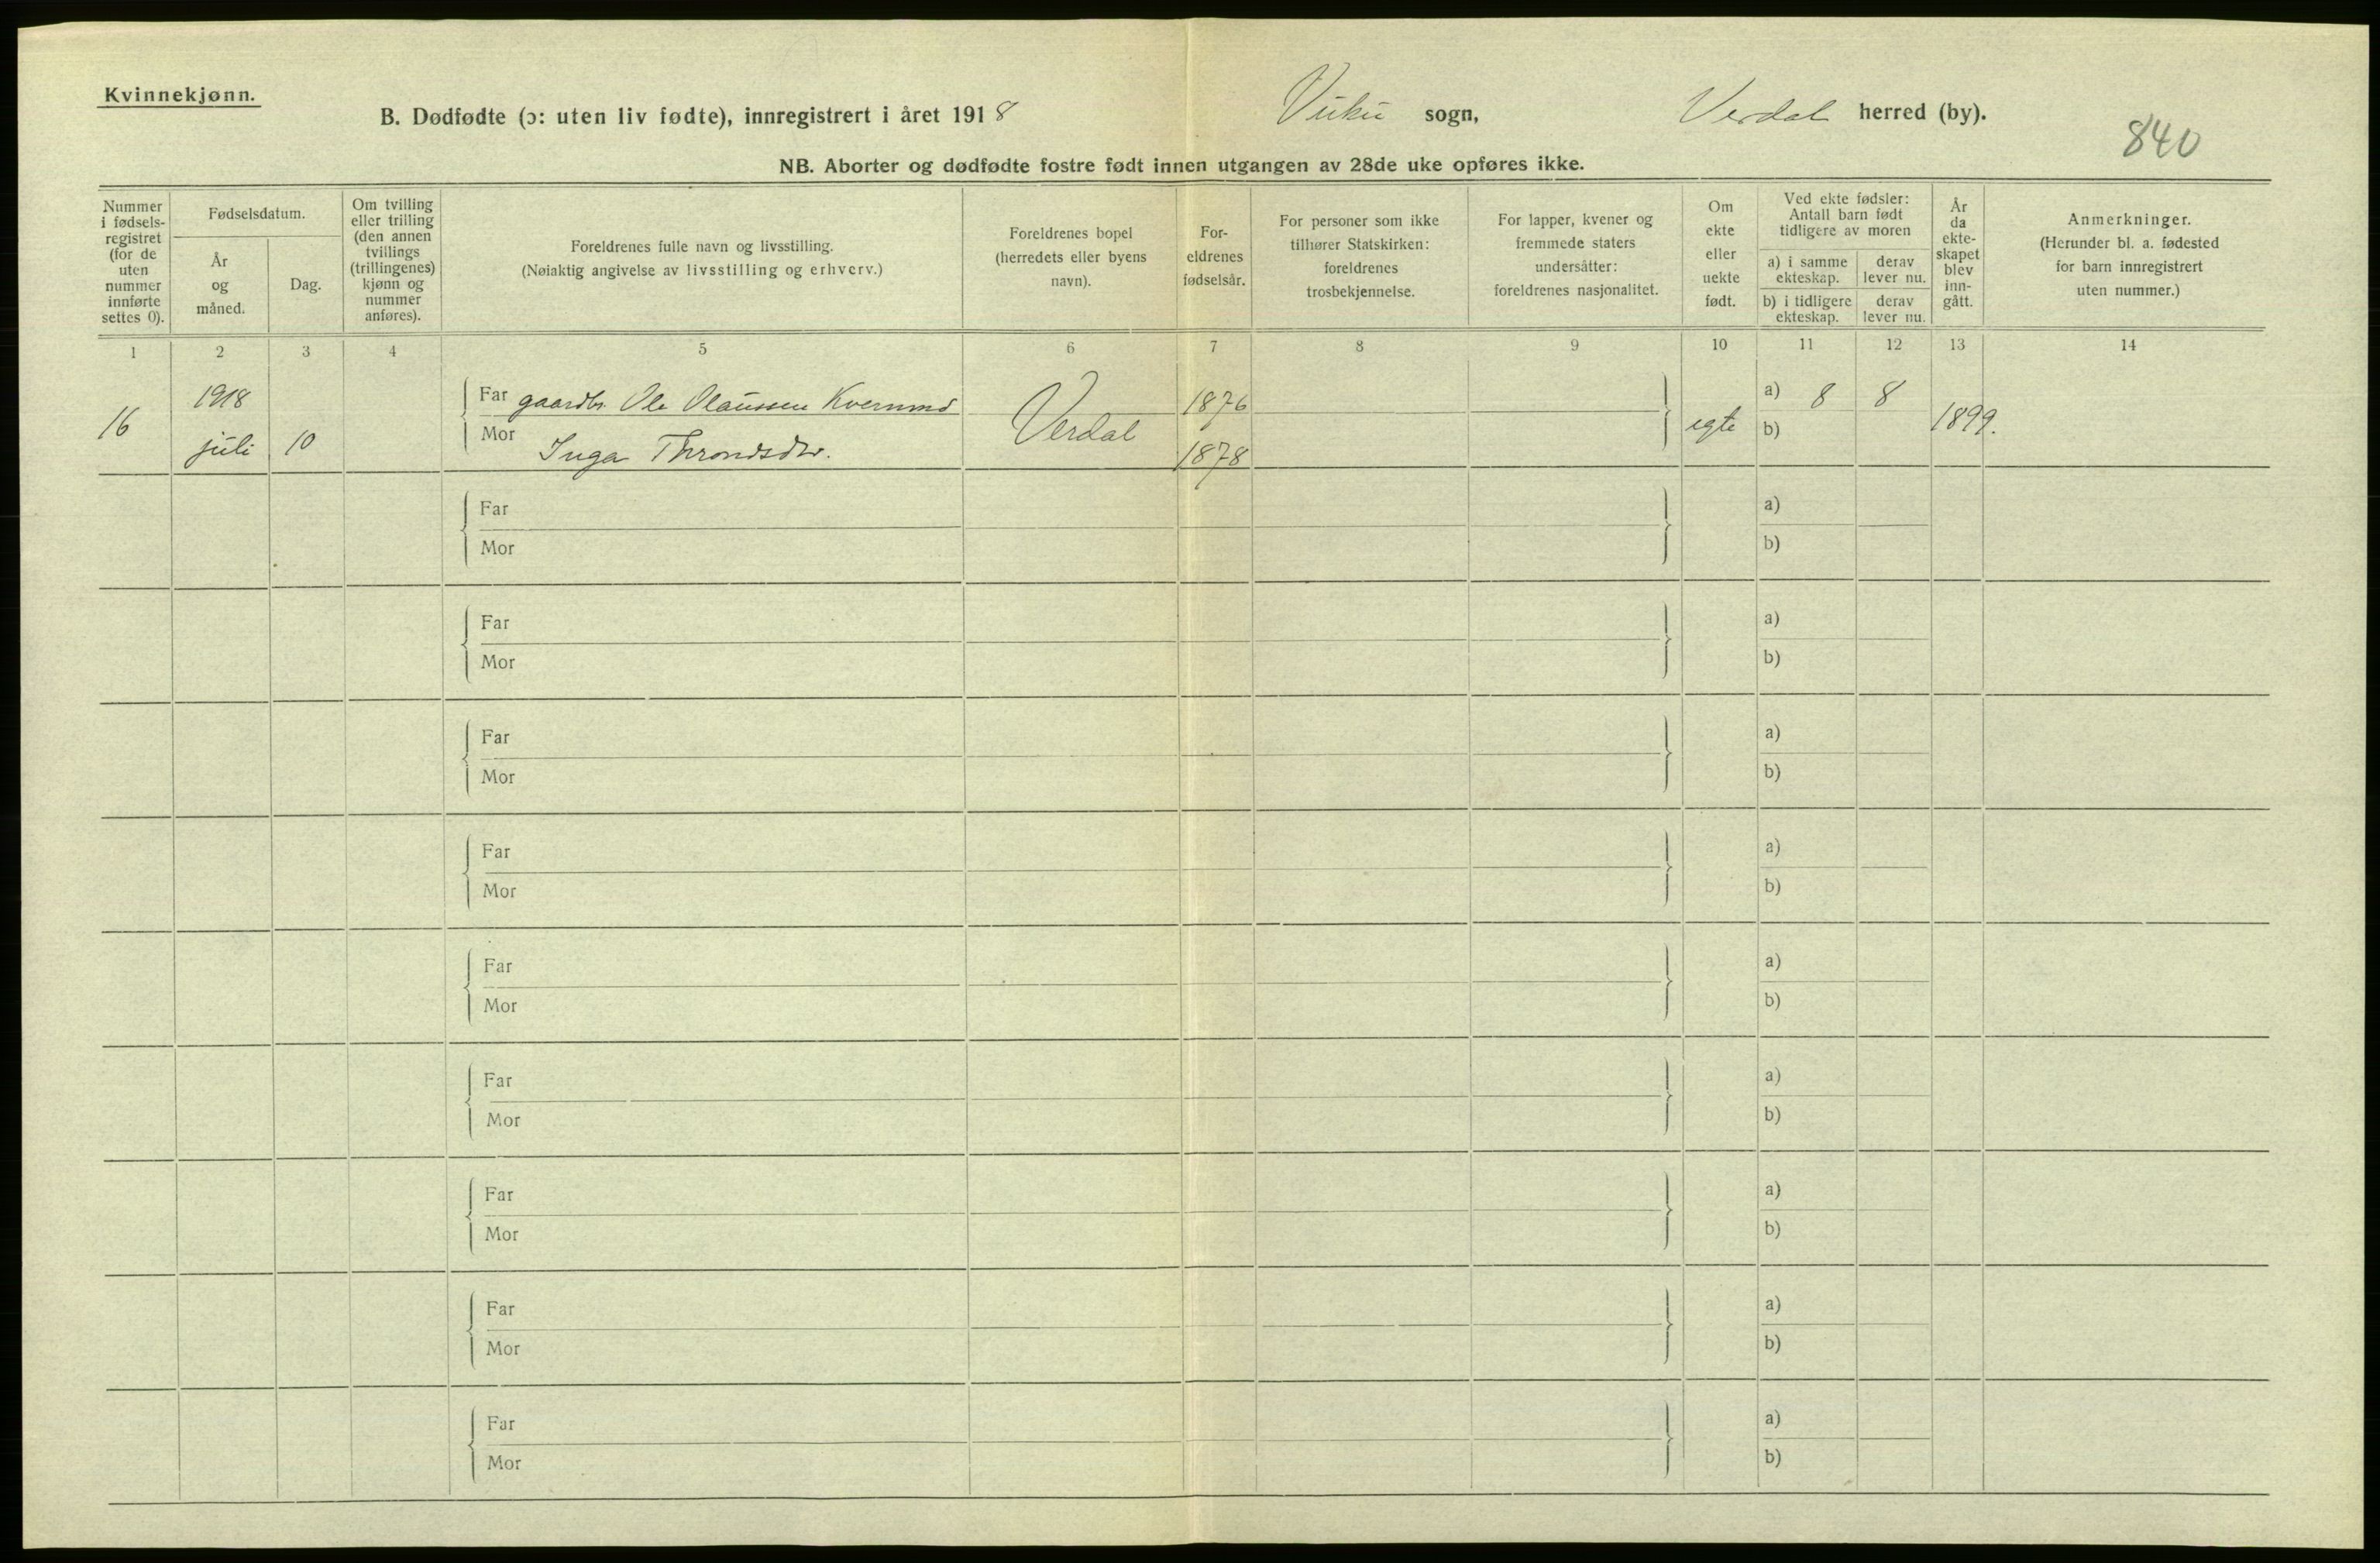 Kvinnekjønn.
B. Dødfødte (ɔ: uten liv fødte), innregistrert i året 1918 Vuku sogn, Verdal herred (by).
840
NB. Aborter og dødfødte fostre født innen utgangen av 28de uke opføres ikke.
Nummer
i fødsels-
registret
(for de
uten
nummer
innførte
settes 0).
Fødselsdatum.
År
og
måned.
Dag.
Om tvilling
eller trilling
(den annen
tvillings
(trillingenes)
kjønn og
nummer
anføres).
Foreldrenes fulle navn og livsstilling.
(Nøiaktig angivelse av livsstilling og erhverv.)
Foreldrenes bopel
(herredets eller byens
navn).
For-
eldrenes
fødselsår.
For personer som ikke
tilhører Statskirken:
foreldrenes
trosbekjennelse.
For lapper, kvener og
fremmede staters
undersåtter:
foreldrenes nasjonalitet.
Om
ekte
eller
uekte
født.
Ved ekte fødsler:
Antall barn født
tidligere av moren
a) i samme
ekteskap.
derav
lever nu.
b) i tidligere
ekteskap.
derav
lever nu.
År
da
ekte-
skapet
blev
inn-
gått.
Anmerkninger.
(Herunder bl. a. fødested
for barn innregistrert
uten nummer.)
1 2 3 4 5 6 7 8 9 10 11 12 13 14
16
1918
juli 10
Far gaardbr. Ole Olaussen
Mor Inga Throndsdtr.
Verdal
1876
1878
egte
a) 8 8
b)
1899.
Far a)
Mor b)
Far a)
Mor b)
Far a)
Mor b)
Far a)
Mor b)
Far a)
Mor b)
Far a)
Mor b)
Far a)
Mor b)
Far a)
Mor b)
Far a)
Mor b)